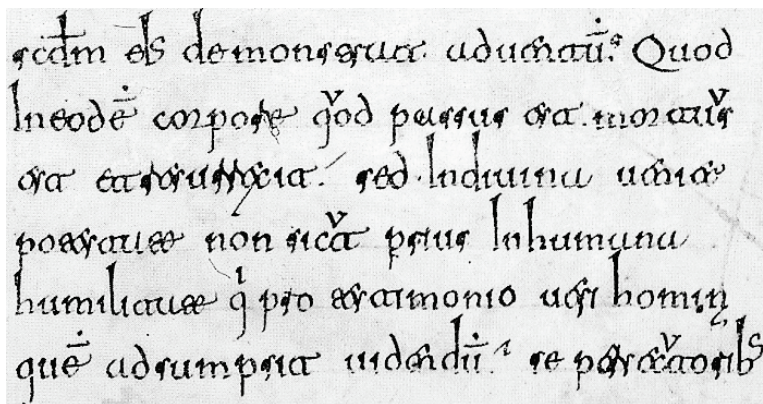 scdm els demonstrat aduentū. Quod
In eodē corpore qͮod passus est. mortuͮs
est et resurrexit. sed In diuina uenie
potestate non sicͮt prius In humana
humilitate qͥ pro testimonio ueri homin
quē adsumpsit uidendū. se persecͮtoribs